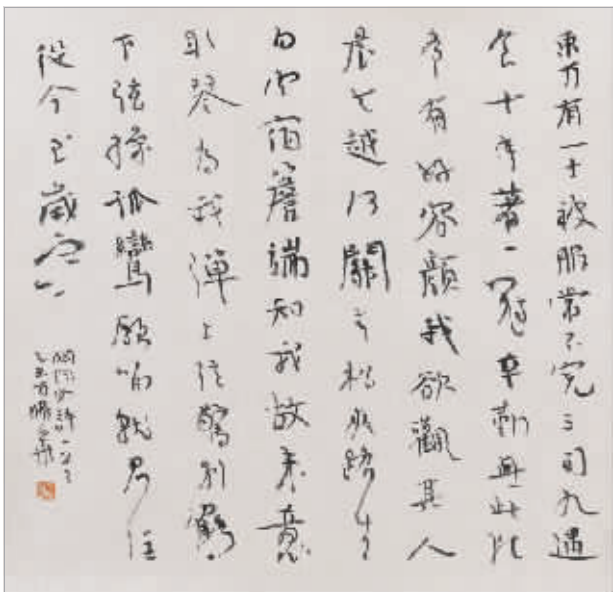 東方有一士被服常不完三旬九遇
食十年著一冠辛勤無此比
常有好容顏我欲觀其人
晨去越河關青松夾路生
白雲宿簷端知我故來意
取琴為我彈上弦驚別鶴
下弦操孤鸞願留就君住
從今至歲寒